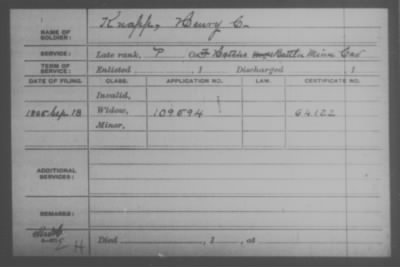 NAME OF SOLDIER: Knapp, Henry C.
SERVICE: Late rank, P Co. Batt'n Minn Cav
TERM OF SERVICE: Enlisted , 1 Discharged , 1
DATE OF FILING. CLASS. APPLICATION NO. LAW. CERTIFICATE NO.
Invalid,
1865 Sep. 18 Widow, 109594 64122
Minor,
ADDITIONAL SERVICES:
REMARKS:
Died , 1 , at